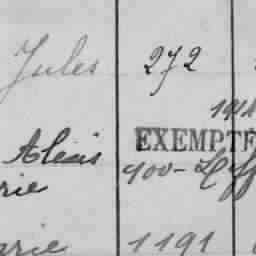 Jules 272
Alexis EXEMPTE
rie 900-
arie 1191